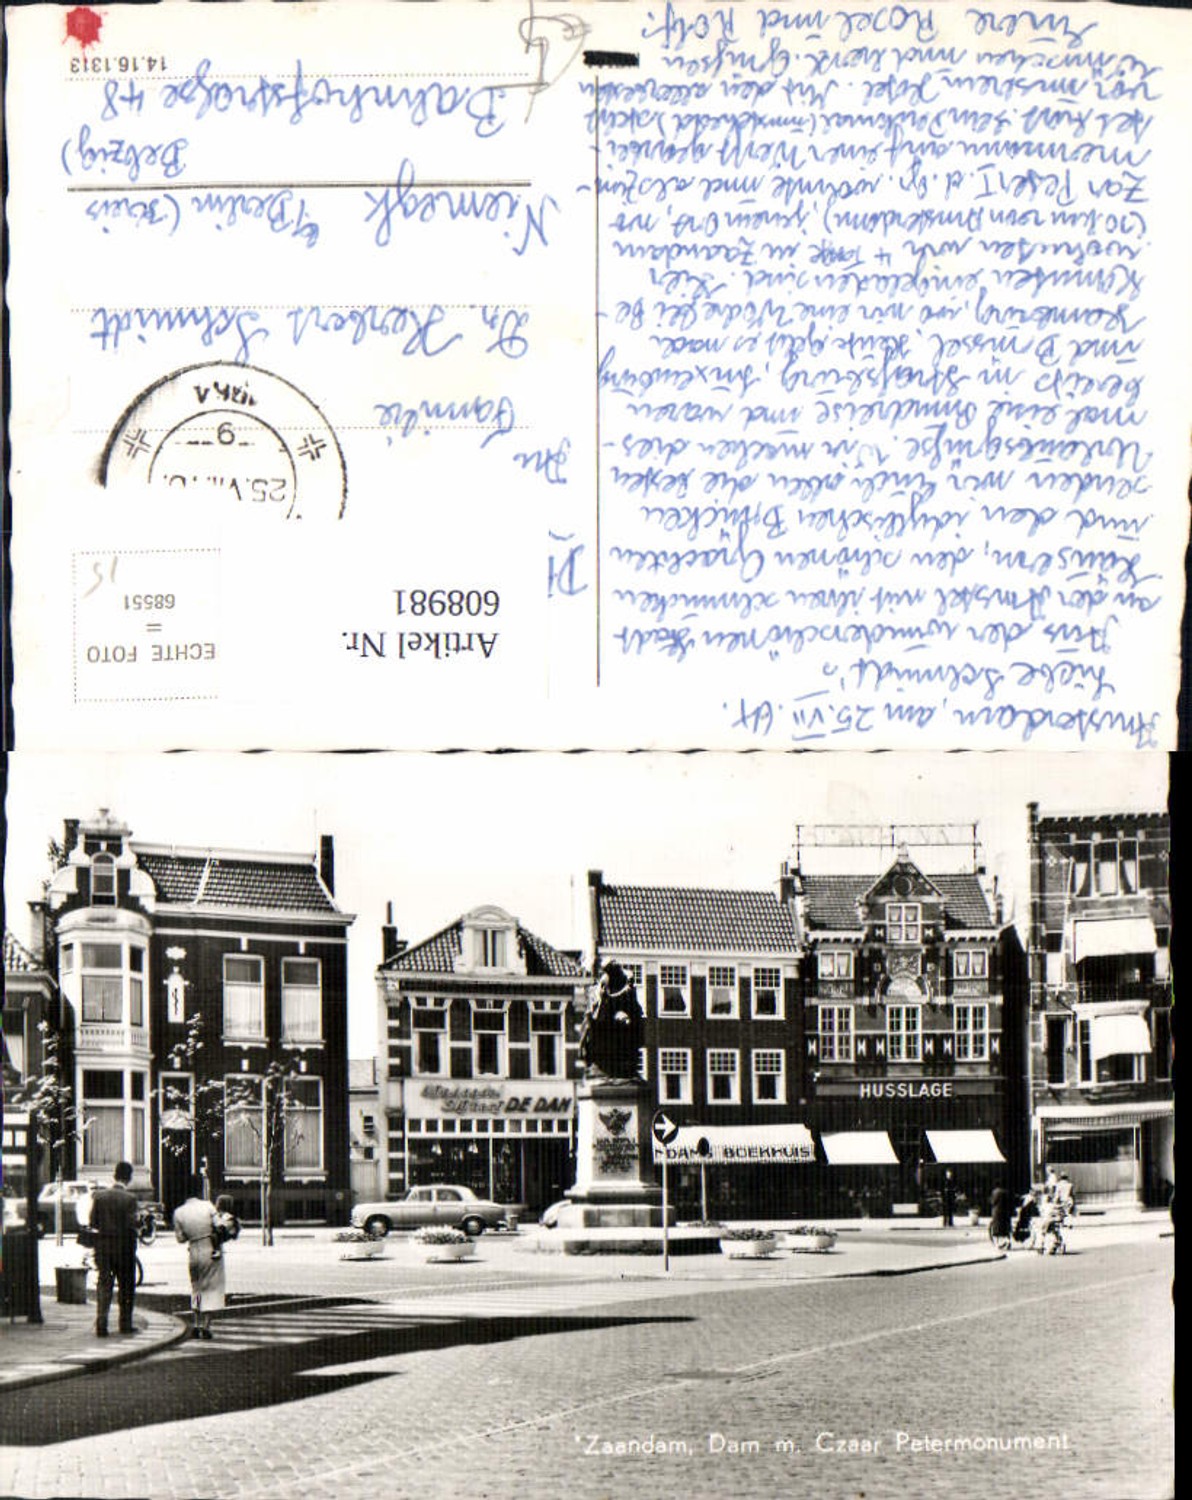 Amsterdam, am 25. VII. 64.
Liebe Schmidt's
Aus der wunderschönen Stadt
an der Amstel mit ihren schmucken
Häusern, den schönen Grachten
und den idyllischen Brücken
senden wir Euch allen die besten
Urlaubsgrüße. Wir machen dies-
mal eine Rundreise und waren
bereits in Straßburg, Luxemburg
und Brüssel. Heute geht es nach
wo wir eine Woche bei Be-
kannten eingeladen sind. Hier
wohnten wir 4 Tage in Zaandam
(10 km von Amsterdam), jenem Ort, wo
Zar Peter I. d. Gr. wohnte und als Zim-
mermann auf einer Werft gearbei-
tet hat. Sein Denkmal (umseitig) steht
vor unserem Hotel. Mit den allerbesten
Wünschen und herzl. Grüßen
Eure Rosel und Rolf.
Artikel Nr.
608981
ECHTE FOTO
=
68551
15
25.VII.
-9-
An
Familie
Dr. Herbert Schmidt
Niemegk b/Berlin (Kreis
Belzig)
Bahnhofstraße 48
14.16.1313
Dam
DE DAM
DAM'S BOEKHUIS
HUSSLAGE
Zaandam, Dam m. Czaar Petermonument